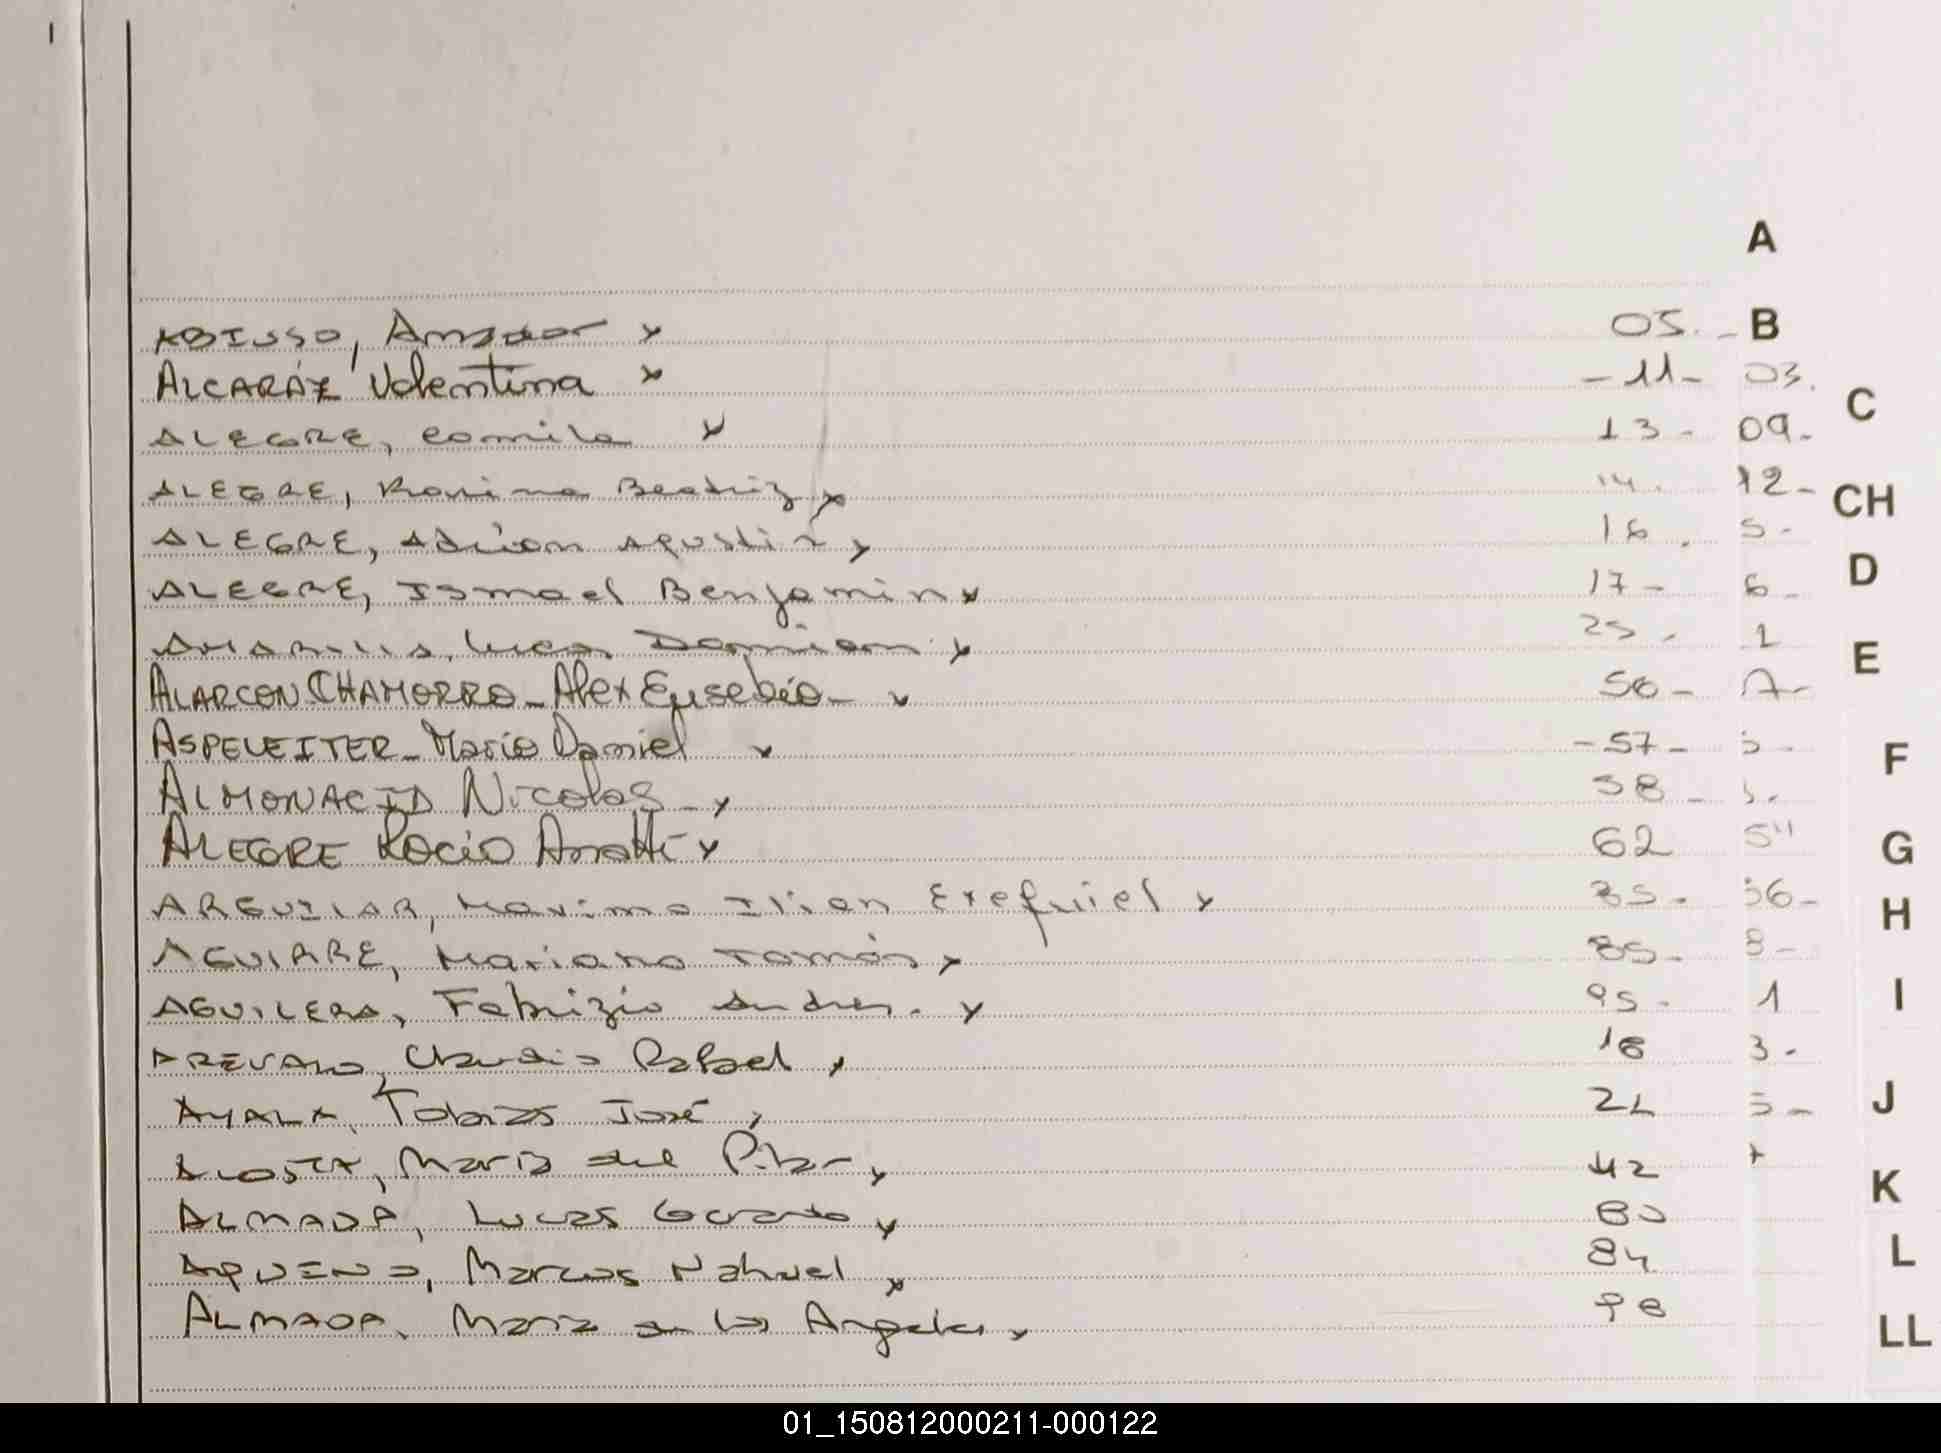 A
ABIUSO, Amador x 05. - B
ALCARÁZ Valentina x - 11 - 03. C
ALEGRE, Camila x 13 - 09.
ALEGRE, Karina Beatriz x 14. 12 - CH
ALEGRE, Adrian Agustin x 16. 5 - D
ALEGRE, Ismael Benjamin x 17 - 6 -
AMARILLA, Lucas Damian x 25 - 1 E
ALARCON CHAMORRO - Alex Eusebio - x 50 -
ASPELEITER - Mario Daniel x - 57 - F
ALMONACID Nicolas - x 58 -
ALEGRE Rocio x 62 G
Maximo Ilian Exequiel x 85 - H
AGUIRRE, Mariano Tomás x 85 - 8 -
AGUILERA, Fabrizio Andres. x 95 - 1 I
AREVALO, Claudio Rafael x 18 3 -
AYALA, Tobias José x J
ACOSTA, Maria del Pilar x 42 K
ALMADA, Lucas Gerardo x 80 L
AQUINO, Marcos Nahuel x 84
ALMADA, Maria de los Angeles x 98 LL
01_150812000211-000122